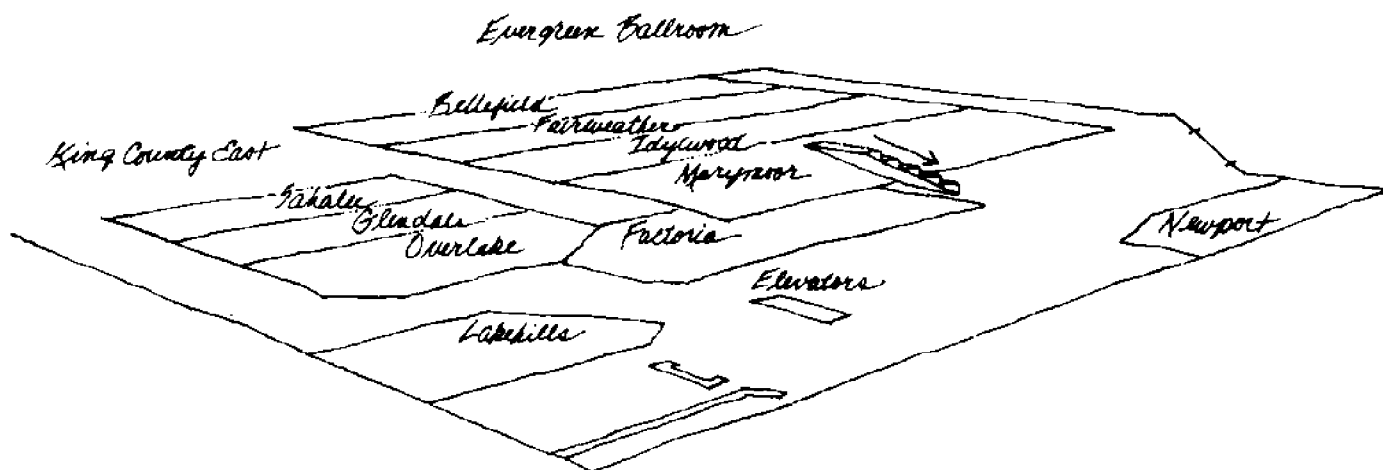 Evergreen Ballroom
Bellefield
Fairweather
Idylwood
King County East
Marymoor
Sahalee
Glendale
Overlake
Factoria
Newport
Elevators
Lakehills